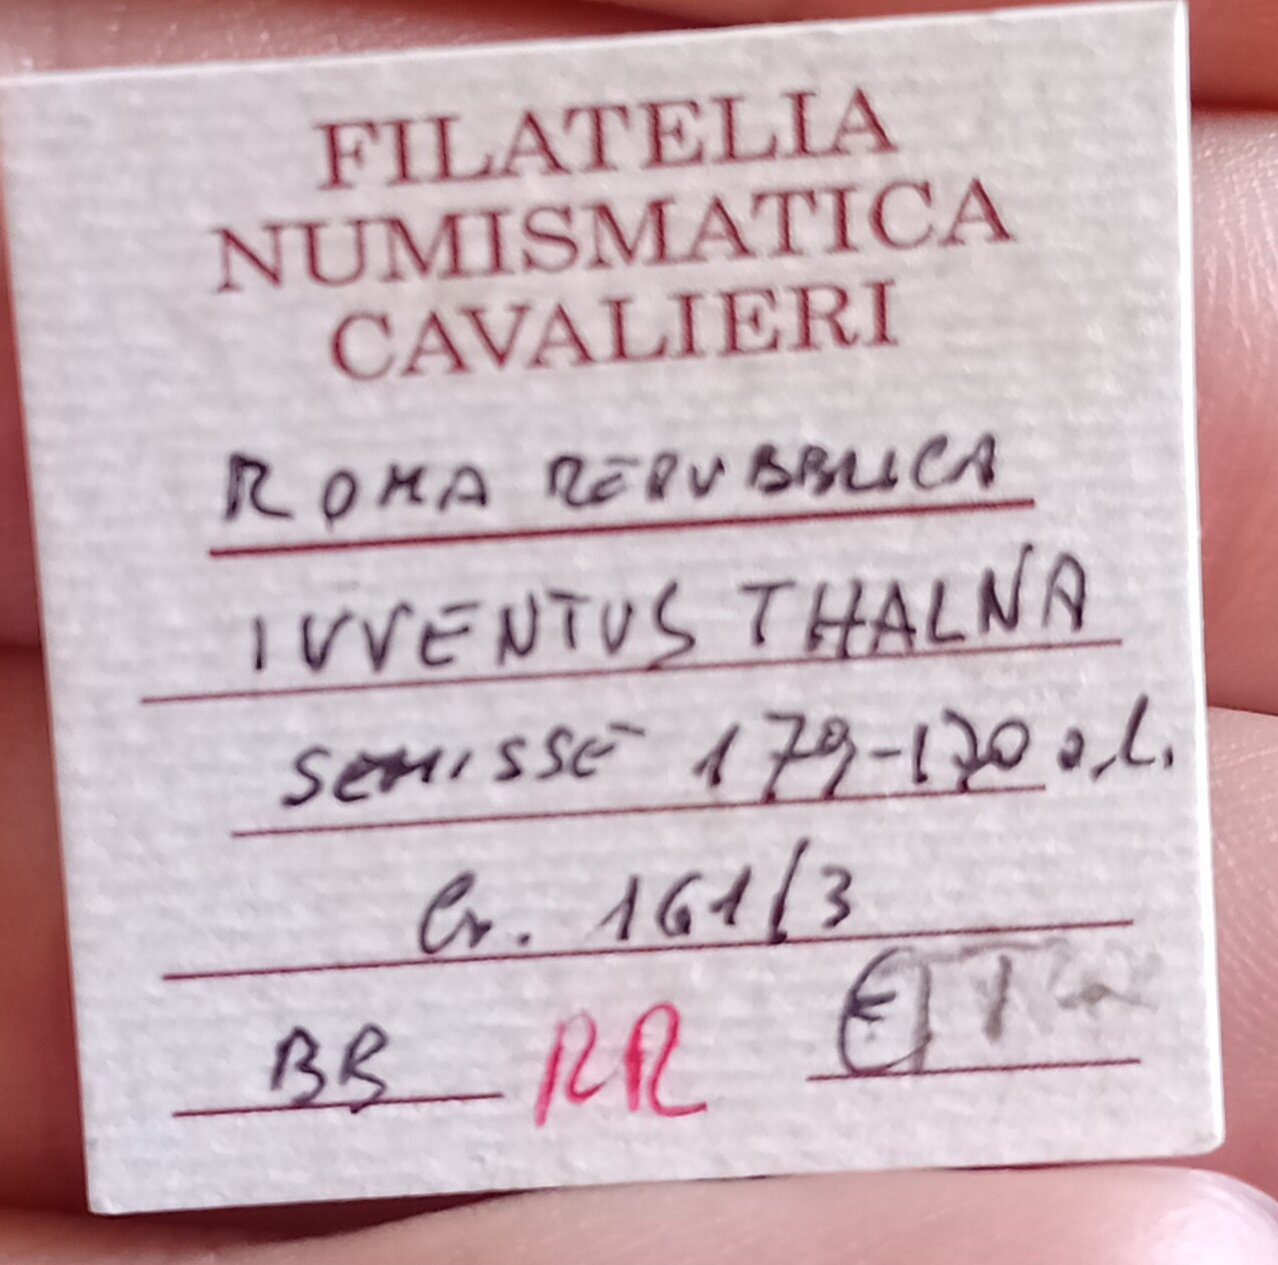 FILATELIA
NUMISMATICA
CAVALIERI
ROMA REPUBBLICA
IVVENTUS THALNA
SEMISSE 179-170 a.C.
Cr. 161/3
BB RR